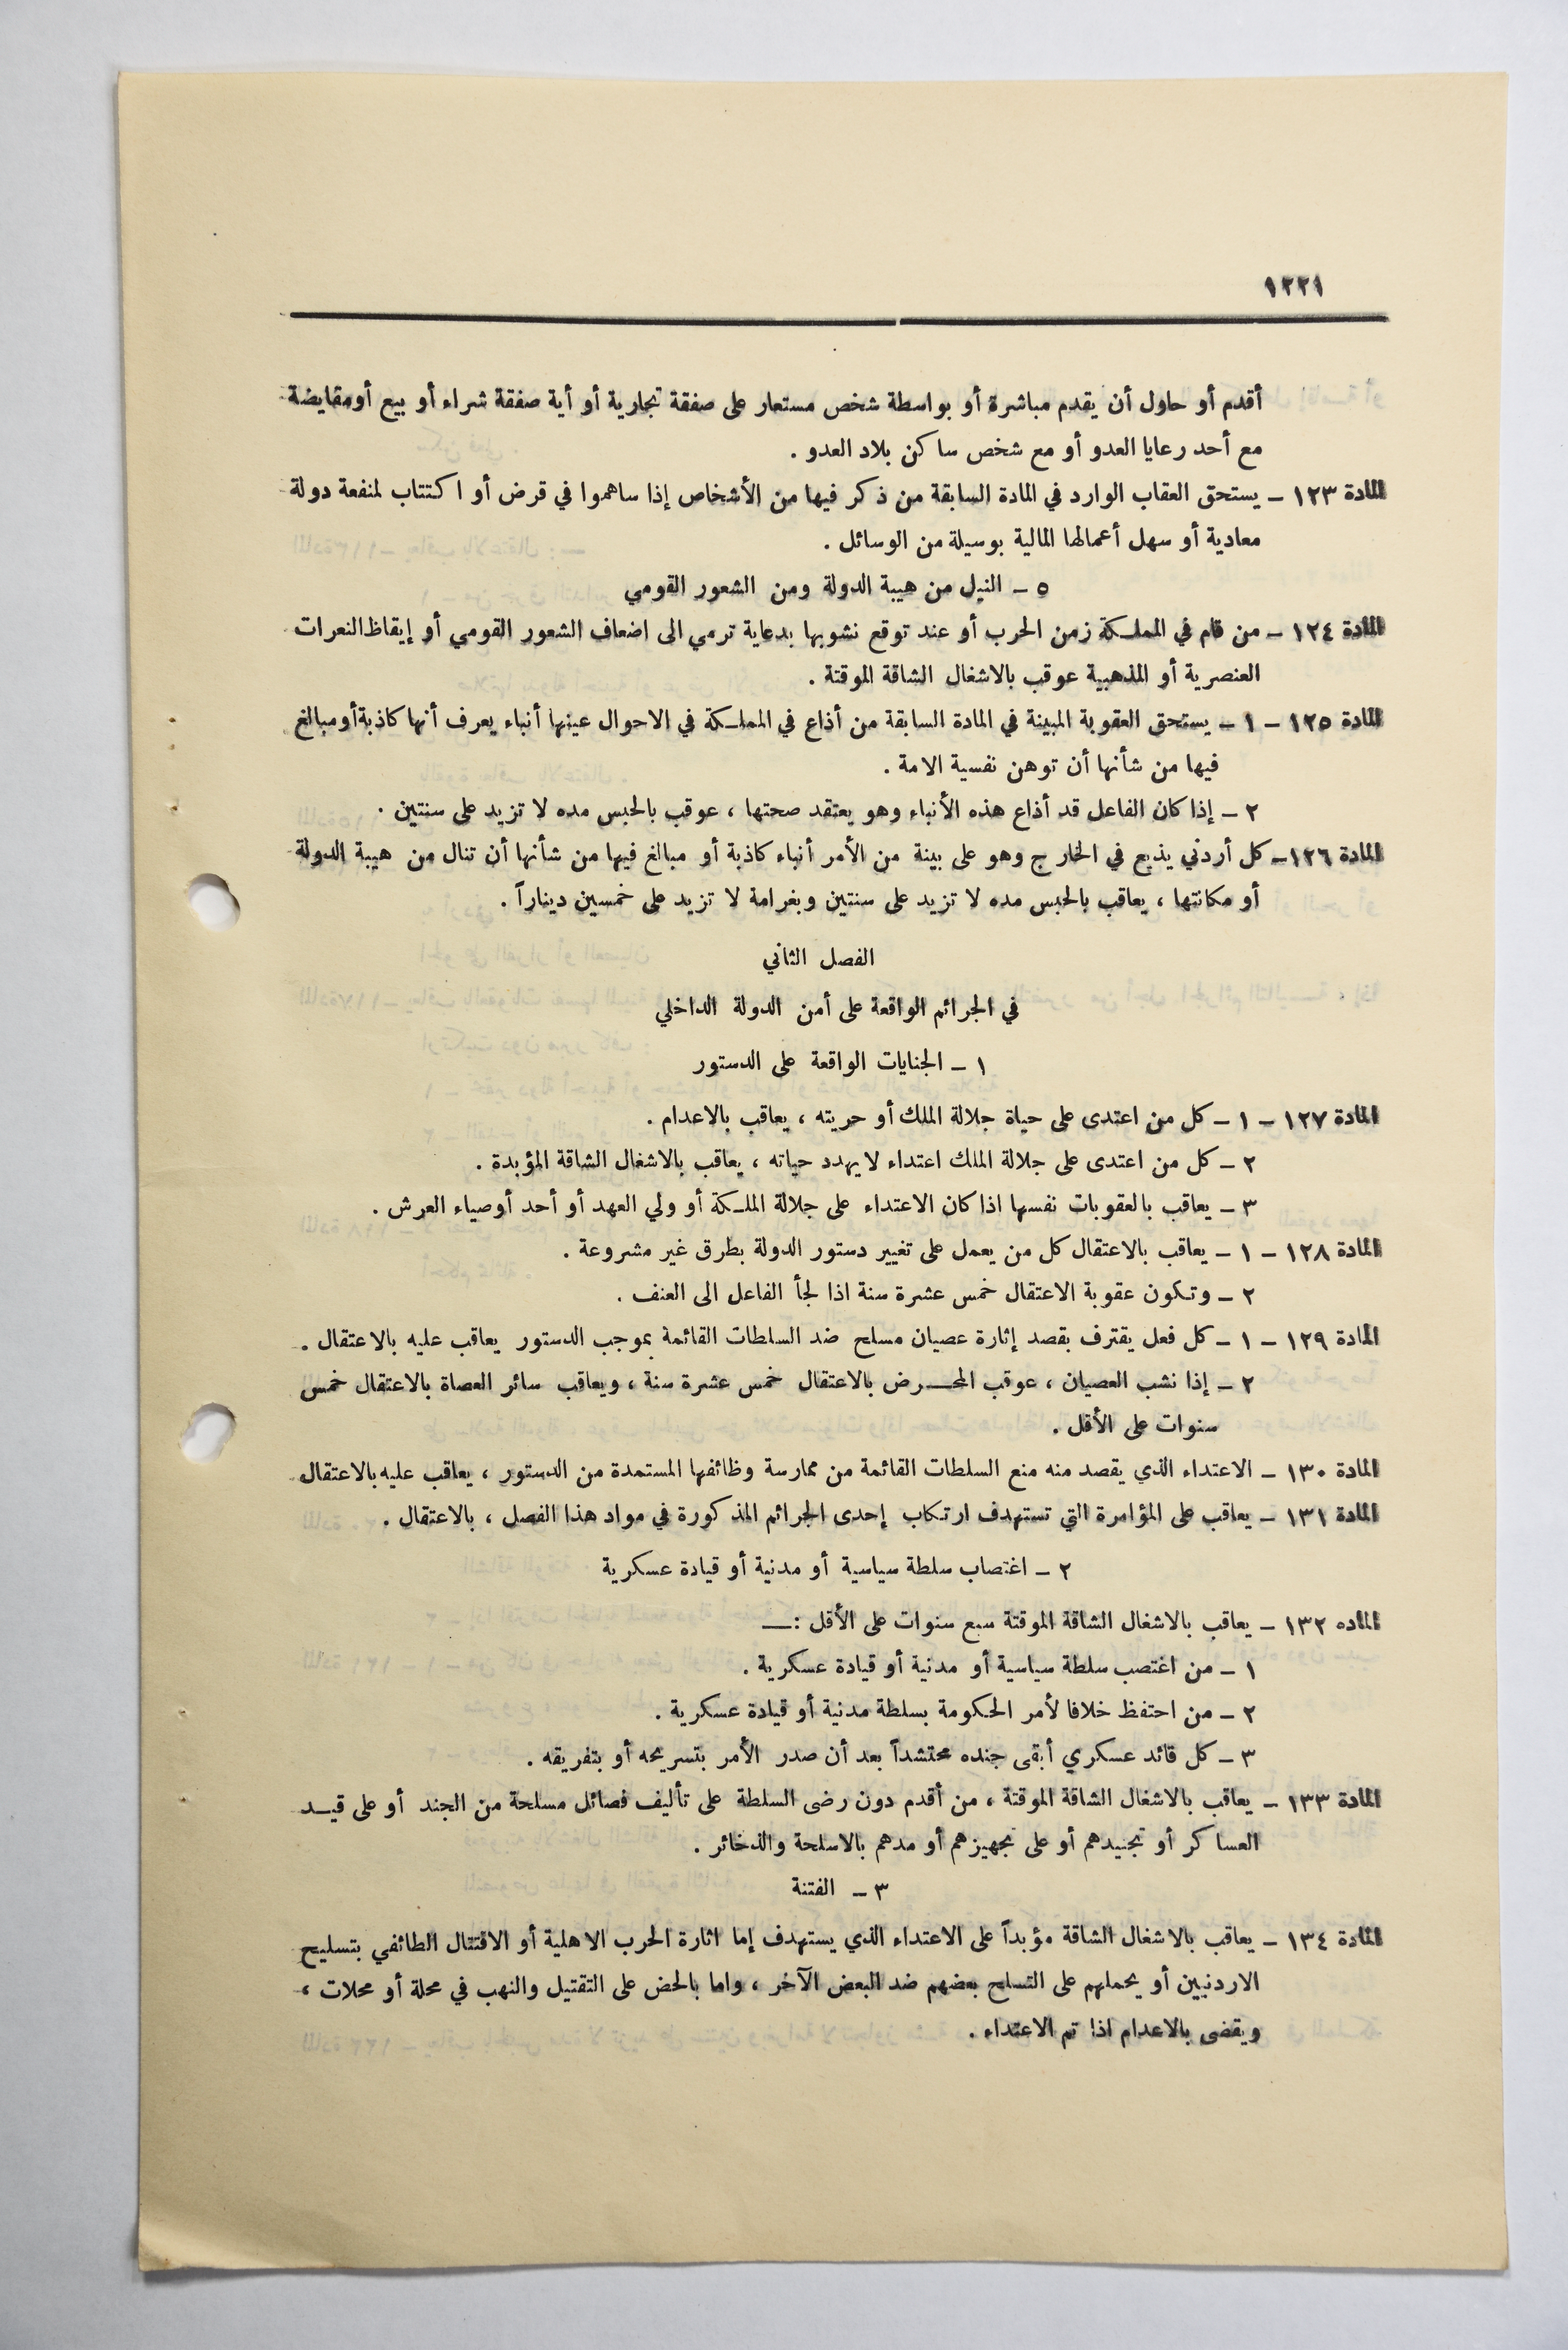 ١٢٢١
أقدم أو حاول أن يقدم مباشرة أو بواسطة شخص مستعار على صفقة تجارية أو أية صفقة شراء أو بيع أو مقايضة
مع أحد رعايا العدو أو مع شخص ساكن بلاد العدو .
المادة ١٢٣ ـ يستحق العقاب الوارد في المادة السابقة من ذكر فيها من الأشخاص إذا ساهموا في قرض أو اكتتاب لمنفعة دولة
معادية أو سهل أعمالها المالية بوسيلة من الوسائل .
٥ ـ النيل من هيبة الدولة ومن الشعور القومي
المادة ١٢٤ ـ من قام في المملكة زمن الحرب أو عند توقع نشوبها بدعاية ترمي الى اضعاف الشعور القومي أو إيقاظ النعرات
العنصرية أو المذهبية عوقب بالاشغال الشاقة الموقتة .
المادة ١٢٥ ـ ١ ـ يستحق العقوبة المبينة في المادة السابقة من أذاع في المملكة في الاحوال عينها أنباء يعرف أنها كاذبة أو مبالغ
فيها من شأنها أن توهن نفسية الامة .
٢ ـ إذا كان الفاعل قد أذاع هذه الأنباء وهو يعتقد صحتها ، عوقب بالحبس مده لا تزيد على سنتين .
المادة ١٢٦ـ كل أردني يذيع في الخارج وهو على بينة من الأمر أنباء كاذبة أو مبالغ فيها من شأنها أن تنال من هيبة الدولة
أو مكانتها ، يعاقب بالحبس مده لا تزيد على سنتين وبغرامة لا تزيد على خمسين ديناراً .
الفصل الثاني
في الجرائم الواقعة على أمن الدولة الداخلي
١ ـ الجنايات الواقعة على الدستور
المادة ١٢٧ ـ ١ ـ كل من اعتدى على حياة جلالة الملك أو حريته ، يعاقب بالاعدام .
٢ ـ كل من اعتدى على جلالة الملك اعتداء لا يهدد حياته ، يعاقب بالاشغال الشاقة المؤبدة .
٣ ـ يعاقب بالعقوبات نفسها اذا كان الاعتداء على جلالة الملكة أو ولي العهد أو أحد أوصياء العرش .
المادة ١٢٨ ـ ١ ـ يعاقب بالاعتقال كل من يعمل على تغيير دستور الدولة بطرق غير مشروعة .
٢ ـ وتكون عقوبة الاعتقال خمس عشرة سنة اذا لجأ الفاعل الى العنف .
المادة ١٢٩ ـ ١ ـ كل فعل يقترف بقصد إثارة عصيان مسلح ضد السلطات القائمة بموجب الدستور يعاقب عليه بالاعتقال .
٢ ـ إذا نشب العصيان ، عوقب المحـــرض بالاعتقال خمس عشرة سنة ، ويعاقب سائر العصاة بالاعتقال خمس
سنوات على الأقل .
المادة ١٣٠ ـ الاعتداء الذي يقصد منه منع السلطات القائمة من ممارسة وظائفها المستمدة من الدستور ، يعاقب عليه بالاعتقال
المادة ١٣١ ـ يعاقب على المؤامرة التي تستهدف ارتكاب إحدى الجرائم المذكورة في مواد هذا الفصل ، بالاعتقال .
٢ ـ اغتصاب سلطة سياسية أو مدنية أو قيادة عسكرية
الماده ١٣٢ ـ يعاقب بالاشغال الشاقة الموقتة سبع سنوات على الأقل :ــ
١ ـ من اغتصب سلطة سياسية أو مدنية أو قيادة عسكرية .
٢ ـ من احتفظ خلافا لأمر الحكومة بسلطة مدنية أو قيادة عسكرية .
٣ ـ كل قائد عسكري أبقى جنده محتشداً بعد أن صدر الأمر بتسريحه أو بتفريقه .
المادة ١٣٣ ـ يعاقب بالاشغال الشاقة الموقتة ، من أقدم دون رضى السلطة على تأليف فصائل مسلحة من الجند أو على قيــد
العساكر أو تجنيدهم أو على تجهيزهم أو مدهم بالاسلحة والذخائر .
٣ ـ الفتنة
المادة ١٣٤ ـ يعاقب بالاشغال الشاقة مؤبداً على الاعتداء الذي يستهدف إما اثارة الحرب الاهلية أو الاقتتال الطائفي بتسليح
الاردنيين أو يحملهم على التسلح بعضهم ضد البعض الآخر ، واما بالحض على التقتيل والنهب في محلة أو محلات ،
ويقضى بالاعدام اذا تم الاعتداء .